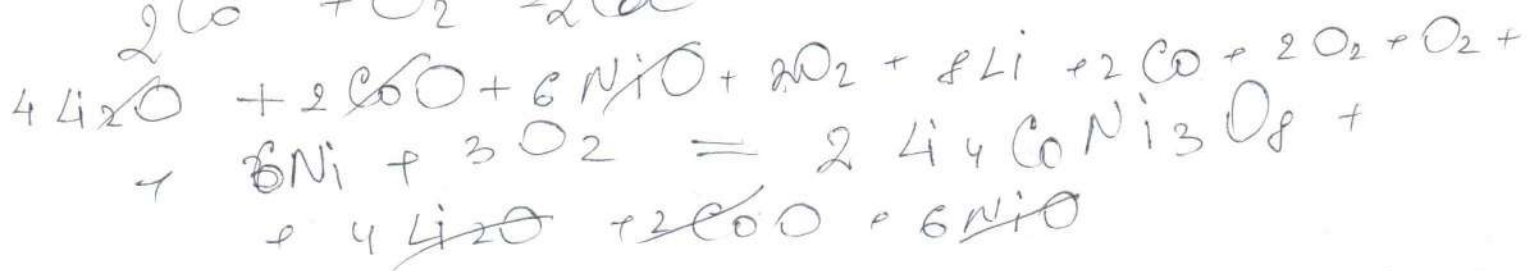 2Co + O2 = 2Co
4 Li2O + 2 CoO + 6 NiO + 2O2 + 8Li + 2 Co + 2 O2 + O2 +
+ 6Ni + 3 O2 = 2 Li4 Co Ni3 O8 +
+ 4 Li2O + 2 CoO + 6 NiO